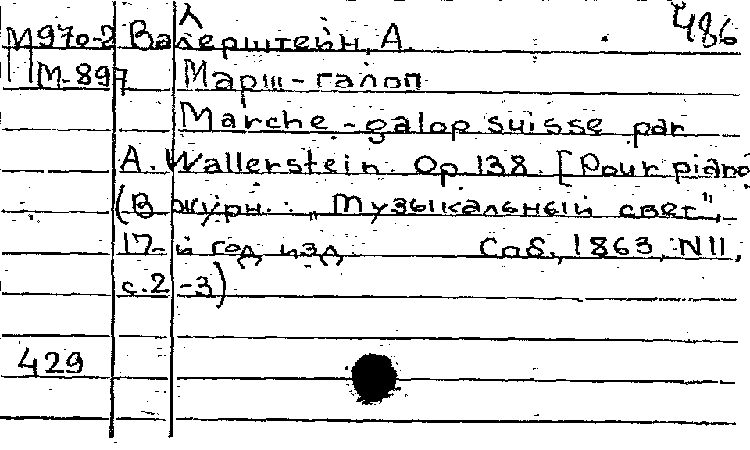 486
М970-2 Валерштейн, А.
М-897 Марш-галоп
Marche-galop suisse par
A. Wallerstein. Op 138. [Pour piano
(В журн.: „Музыкальный свет",
17-й год изд. Спб., 1863, N11,
с.2-3)
429